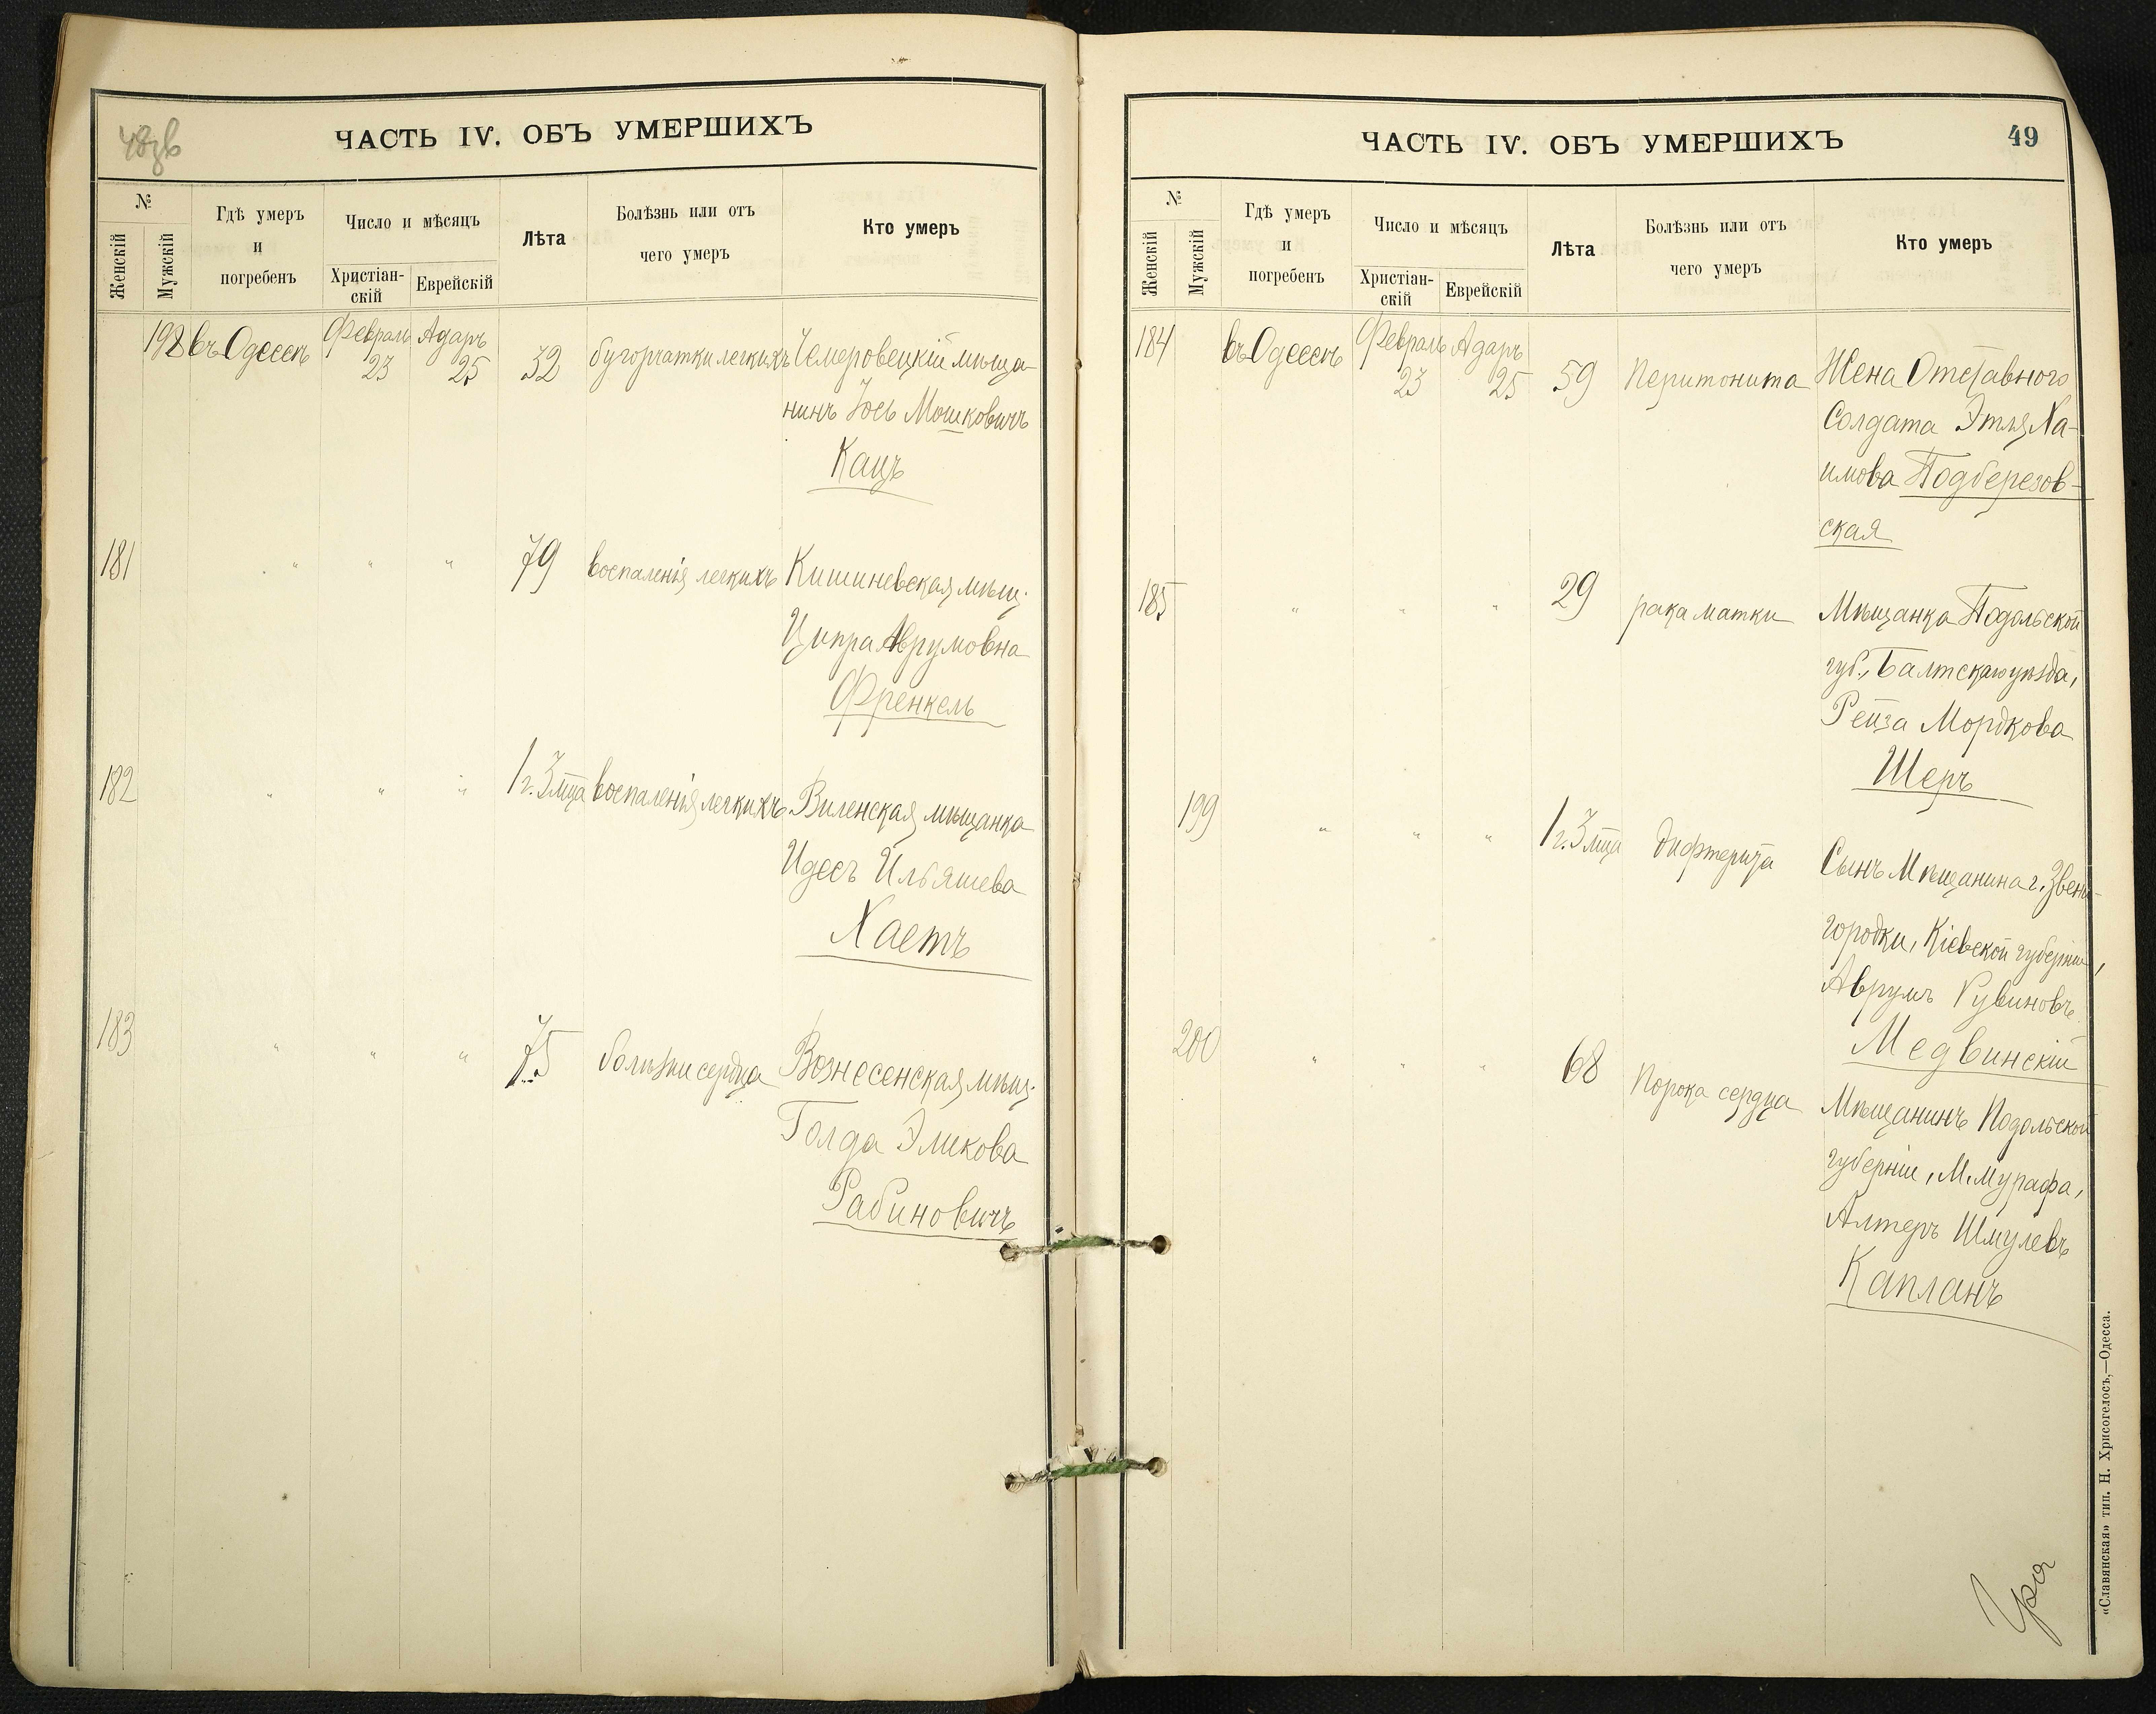 48зв
ЧАСТЬ IV. ОБЪ УМЕРШИХЪ
№
Женскій
Мужскій
Гдѣ умеръ
и
погребенъ
Число и мѣсяцъ
Христіан-
скій
Еврейскій
Лѣта
Болѣзнь или отъ
чего умеръ
Кто умеръ
198 въ Одессѣ Февраль Адаръ
23 25 32 бугорчатки легкихъ Чемеровецкій мѣща-
нинъ Іось Мошковичъ
Кацъ
181 " " " 79 воспаленія легкихъ Кишиневская мѣщ.
Ципра Аврумовна
Френкель
182 " " " 1 г. 3 мца воспаленія легкихъ Виленская мѣщанка
Идесъ Ильяшева
Хаетъ
183 " " " 75 болѣзни сердца Вознесенская мѣщ.
Голда Эликова
Рабиновичъ
ЧАСТЬ IV. ОБЪ УМЕРШИХЪ
49
№
Женскій
Мужскій
Гдѣ умеръ
и
погребенъ
Число и мѣсяцъ
Христіан-
скій
Еврейскій
Лѣта
Болѣзнь или отъ
чего умеръ
Кто умеръ
184 въ Одессѣ Февраль Адаръ
23 25 59 Перитонита Жена Отставного
Солдата Этля Ха-
имова Подберезов-
ская
185 " " " 29 рака матки Мѣщанка Подольской
губ., Балтскаго уѣзда,
Рейза Мордкова
Шеръ
199 " " " 1 г. 3 мца дифтерита Сынъ Мѣщанина г. Звени-
городки, Кіевской губерніи,
Аврумъ Рувиновъ
Медвинскій
200 " " " 68 Порока сердца Мѣщанинъ Подольской
губерніи, М. Мурафа,
Алтеръ Шмулевъ
Капланъ
«Славянская» тип. Н. Хрисогелосъ,—Одесса.